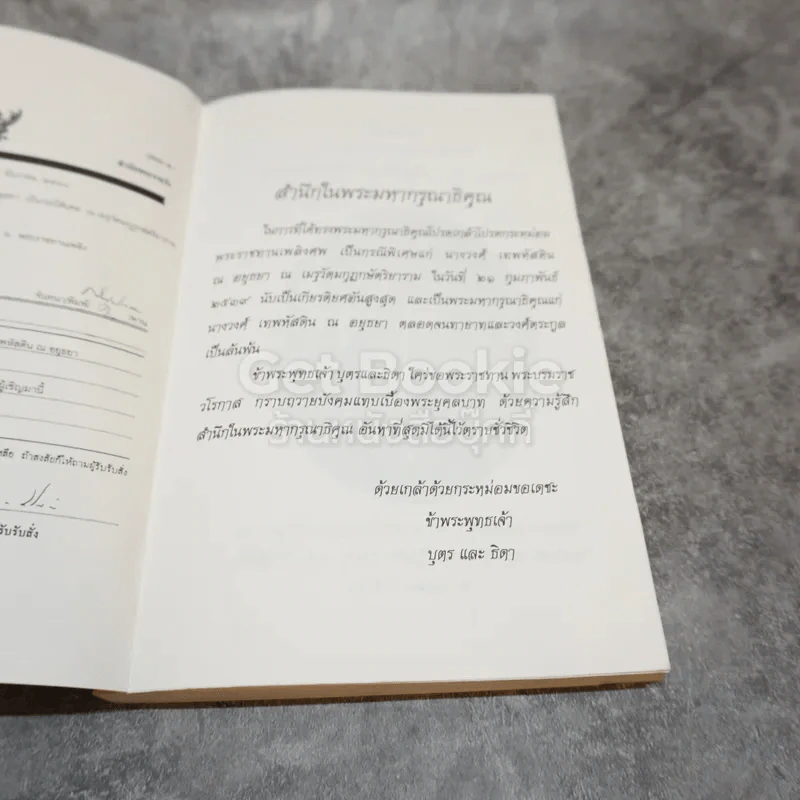 สำนักพระราชวัง
พหัสดิน ณ อยุธยา
ผู้เชิญมานี้
ถ้าสงสัยก็ให้ถามผู้รับรับสั่ง
รับรับสั่ง
สำนึกในพระมหากรุณาธิคุณ
ในการที่ได้ทรงพระมหากรุณาธิคุณโปรดเกล้าโปรดกระหม่อม
พระราชทานเพลิงศพ เป็นกรณีพิเศษแก่ นางวงศ์ เทพหัสดิน
ณ อยุธยา ณ เมรุวัดมกุฏกษัตริยาราม ในวันที่ ๒๑ กุมภาพันธ์
๒๕๓๙ นับเป็นเกียรติยศอันสูงสุด และเป็นพระมหากรุณาธิคุณแก่
นางวงศ์ เทพหัสดิน ณ อยุธยา ตลอดจนทายาทและวงศ์ตระกูล
เป็นล้นพ้น
ข้าพระพุทธเจ้า บุตรและธิดา ใคร่ขอพระราชทาน พระบรมราช
วโรกาส กราบถวายบังคมแทบเบื้องพระยุคลบาท ด้วยความรู้สึก
สำนึกในพระมหากรุณาธิคุณ อันหาที่สุดมิได้นี้ไว้ตราบชั่วชีวิต
ด้วยเกล้าด้วยกระหม่อมขอเดชะ
ข้าพระพุทธเจ้า
บุตร และ ธิดา
Get Bookie
ร้านหนังสือบุ๊คกี้